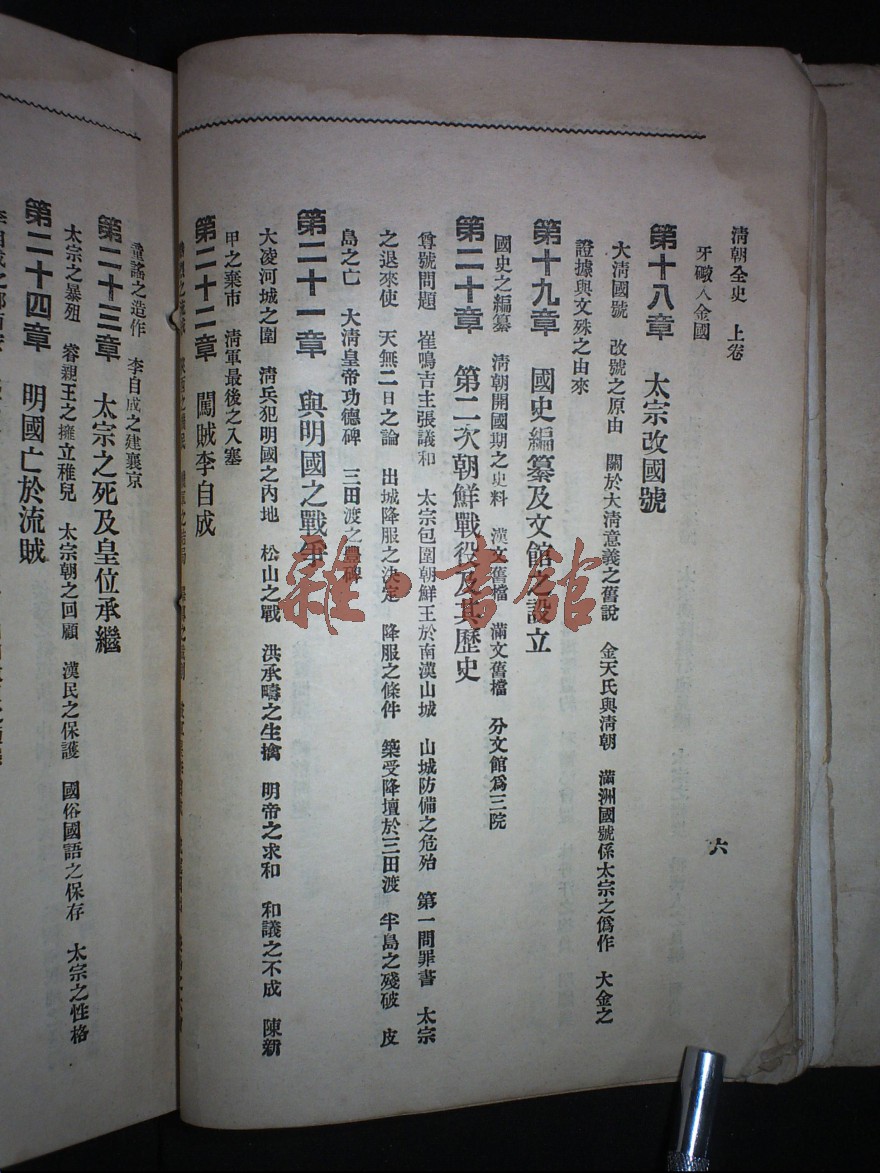 清朝全史 上卷
六
牙礮入金國
第十八章 太宗改國號
大淸國號 改號之原由 關於大淸意義之舊說 金天氏與淸朝 滿洲國號係太宗之僞作 大金之
證據與文殊之由來
第十九章 國史編纂及文館之設立
國史之編纂 淸朝開國期之史料 漢文舊檔 滿文舊檔 分文館爲三院
第二十章 第二次朝鮮戰役及其歷史
尊號問題 崔鳴吉主張議和 太宗包圍朝鮮王於南漢山城 山城防備之危殆 第一問罪書 太宗
之退來使 天無二日之論 出城降服之決定 降服之條件 築受降壇於三田渡 半島之殘破 皮
島之亡 大淸皇帝功德碑 三田渡之豐碑
第二十一章 與明國之戰爭
大凌河城之圍 淸兵犯明國之內地 松山之戰 洪承疇之生擒 明帝之求和 和議之不成 陳新
甲之棄市 淸軍最後之入塞
第二十二章 闖賊李自成
童謠之造作 李自成之建襄京
第二十三章 太宗之死及皇位承繼
太宗之暴殂 睿親王之擁立稚兒 太宗朝之回顧 漢民之保護 國俗國語之保存 太宗之性格
第二十四章 明國亡於流賊
雜·書館